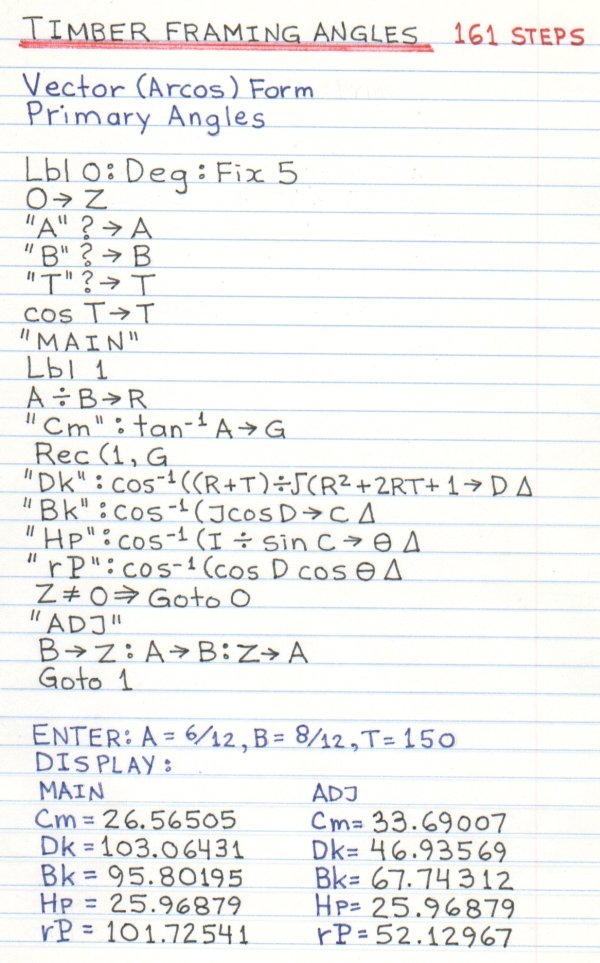 TIMBER FRAMING ANGLES 161 STEPS
Vector (Arcos) Form
Primary Angles
Lbl 0:Deg:Fix 5
0→Z
"A" ?→A
"B" ?→B
"T"?→T
cos T→T
"MAIN"
Lbl 1
A÷B→R
"Cm":tan⁻¹A→G
Rec(1,G
"Dk":cos⁻¹((R+T)÷√(R²+2RT+1→D⊿
"Bk":cos⁻¹(JcosD→C⊿
"Hp":cos⁻¹(I÷sin C→θ⊿
"rP":cos⁻¹(cos D cosθ⊿
Z≠0⇒Goto 0
"ADJ"
B→Z:A→B:Z→A
Goto 1
ENTER: A = 6/12, B = 8/12, T = 150
DISPLAY:
MAIN ADJ
Cm = 26.56505 Cm= 33.69007
Dk = 103.06431 Dk= 46.93569
Bk = 95.80195 Bk= 67.74312
Hp = 25.96879 Hp= 25.96879
rP = 101.72541 rP= 52.12967